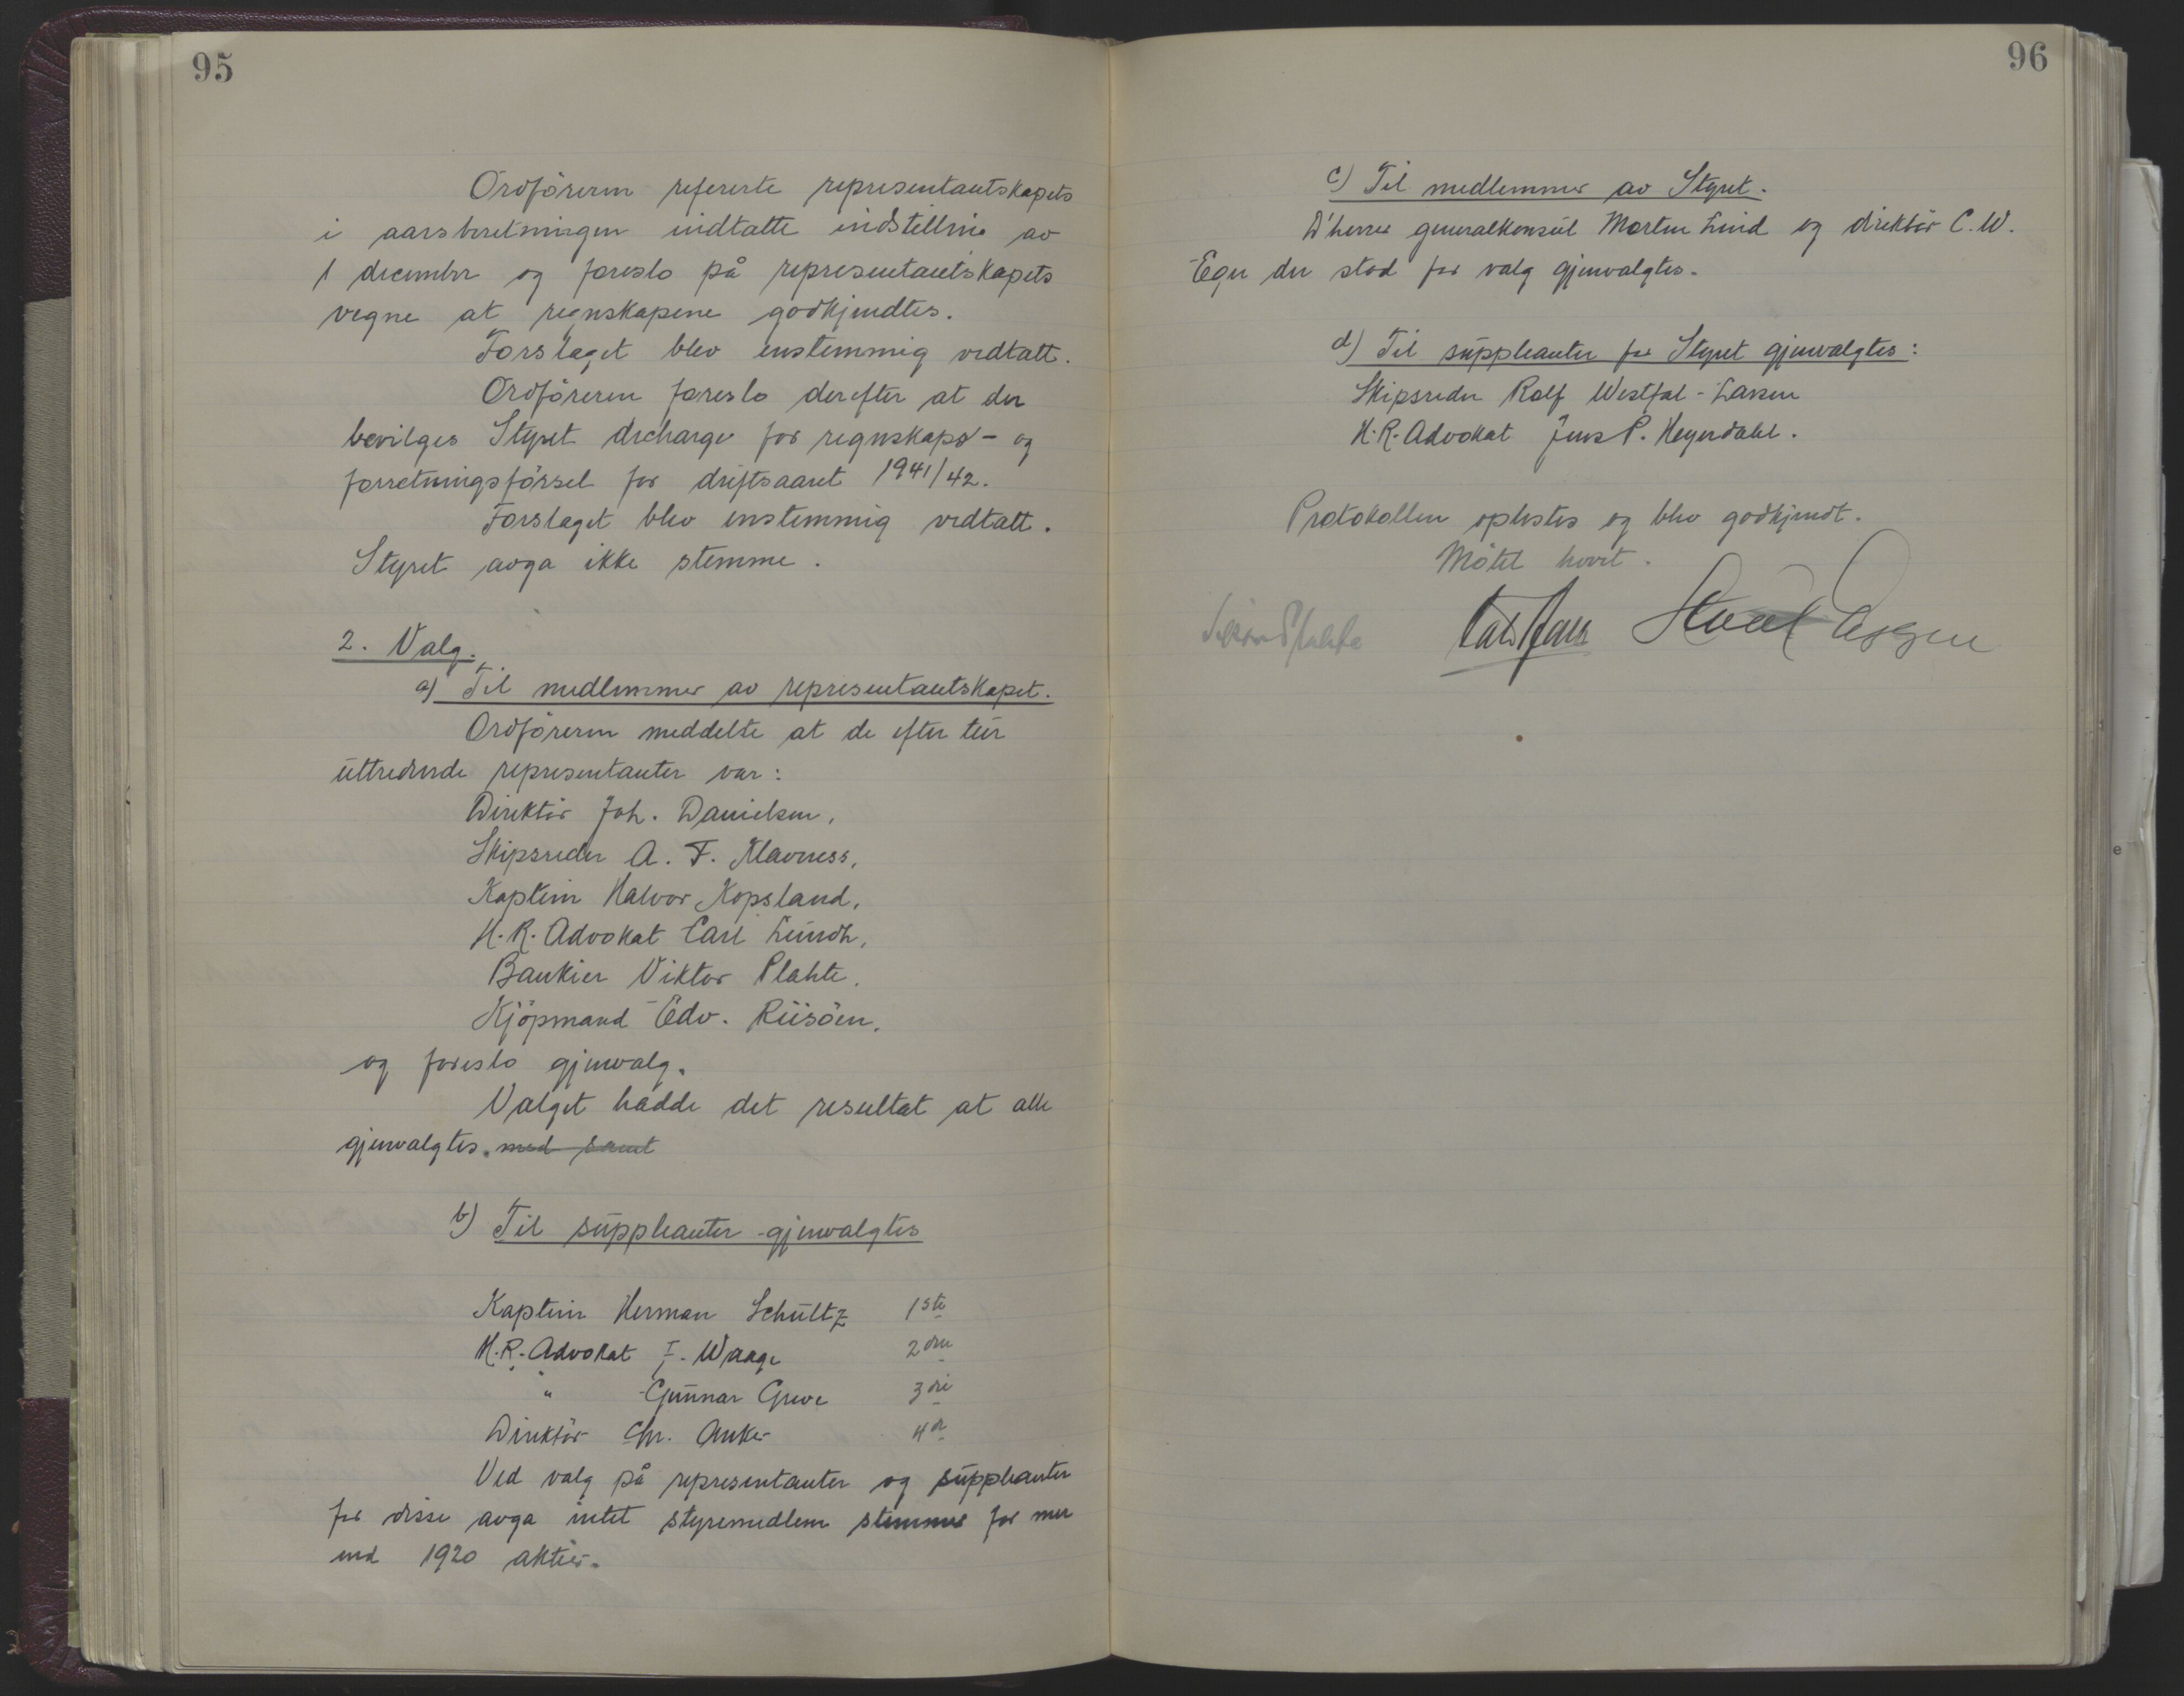 95
Ordföreren refererte representantskapets
i aarsberetningen indtatte indstilling av
1 december og foreslo på representantskapets
vegne at regnskapene godkjendtes.
Forslaget blev enstemmig vedtatt.
Ordföreren foreslo derefter at der
bevilges Styret decharge for regnskaps- og
forretningsförsel for driftsaaret 1941/42.
Forslaget blev enstemmig vedtatt.
Styret avga ikke stemme.
2. Valg.
a) Til medlemmer av representantskapet.
Ordföreren meddelte at de efter tur
uttredende representanter var:
Direktör Joh. Danielsen,
Skipsreder A. F. Klaveness,
Kaptein Halvor Kopsland,
H.R. Advokat Carl Lundh,
Bankier Viktor Plahte.
Kjöpmand Edv. Riisöen.
og foreslo gjenvalg.
Valget hadde det resultat at alle
gjenvalgtes. med samt
b) Til suppleanter gjenvalgtes
Kaptein Herman Schultz 1ste
H.R. Advokat I. Waage 2den
" Gunnar Greve 3die
Direktör Chr. Anker 4de
Ved valg på representanter og suppleanter
for disse avga intet styremedlem stemmer for mer
end 1920 aktier.
96
c) Til medlemmer av Styret.
D'herrer generalkonsul Morten Lind og direktör C.W.
Eger der stod for valg gjenvalgtes.
d) Til suppleanter for Styret gjenvalgtes:
Skipsreder Rolf Westfal-Larsen
H.R. Advokat Jens P. Heyerdahl.
Protokollen oplestes og blev godkjendt.
Mötet hevet.
Plahte